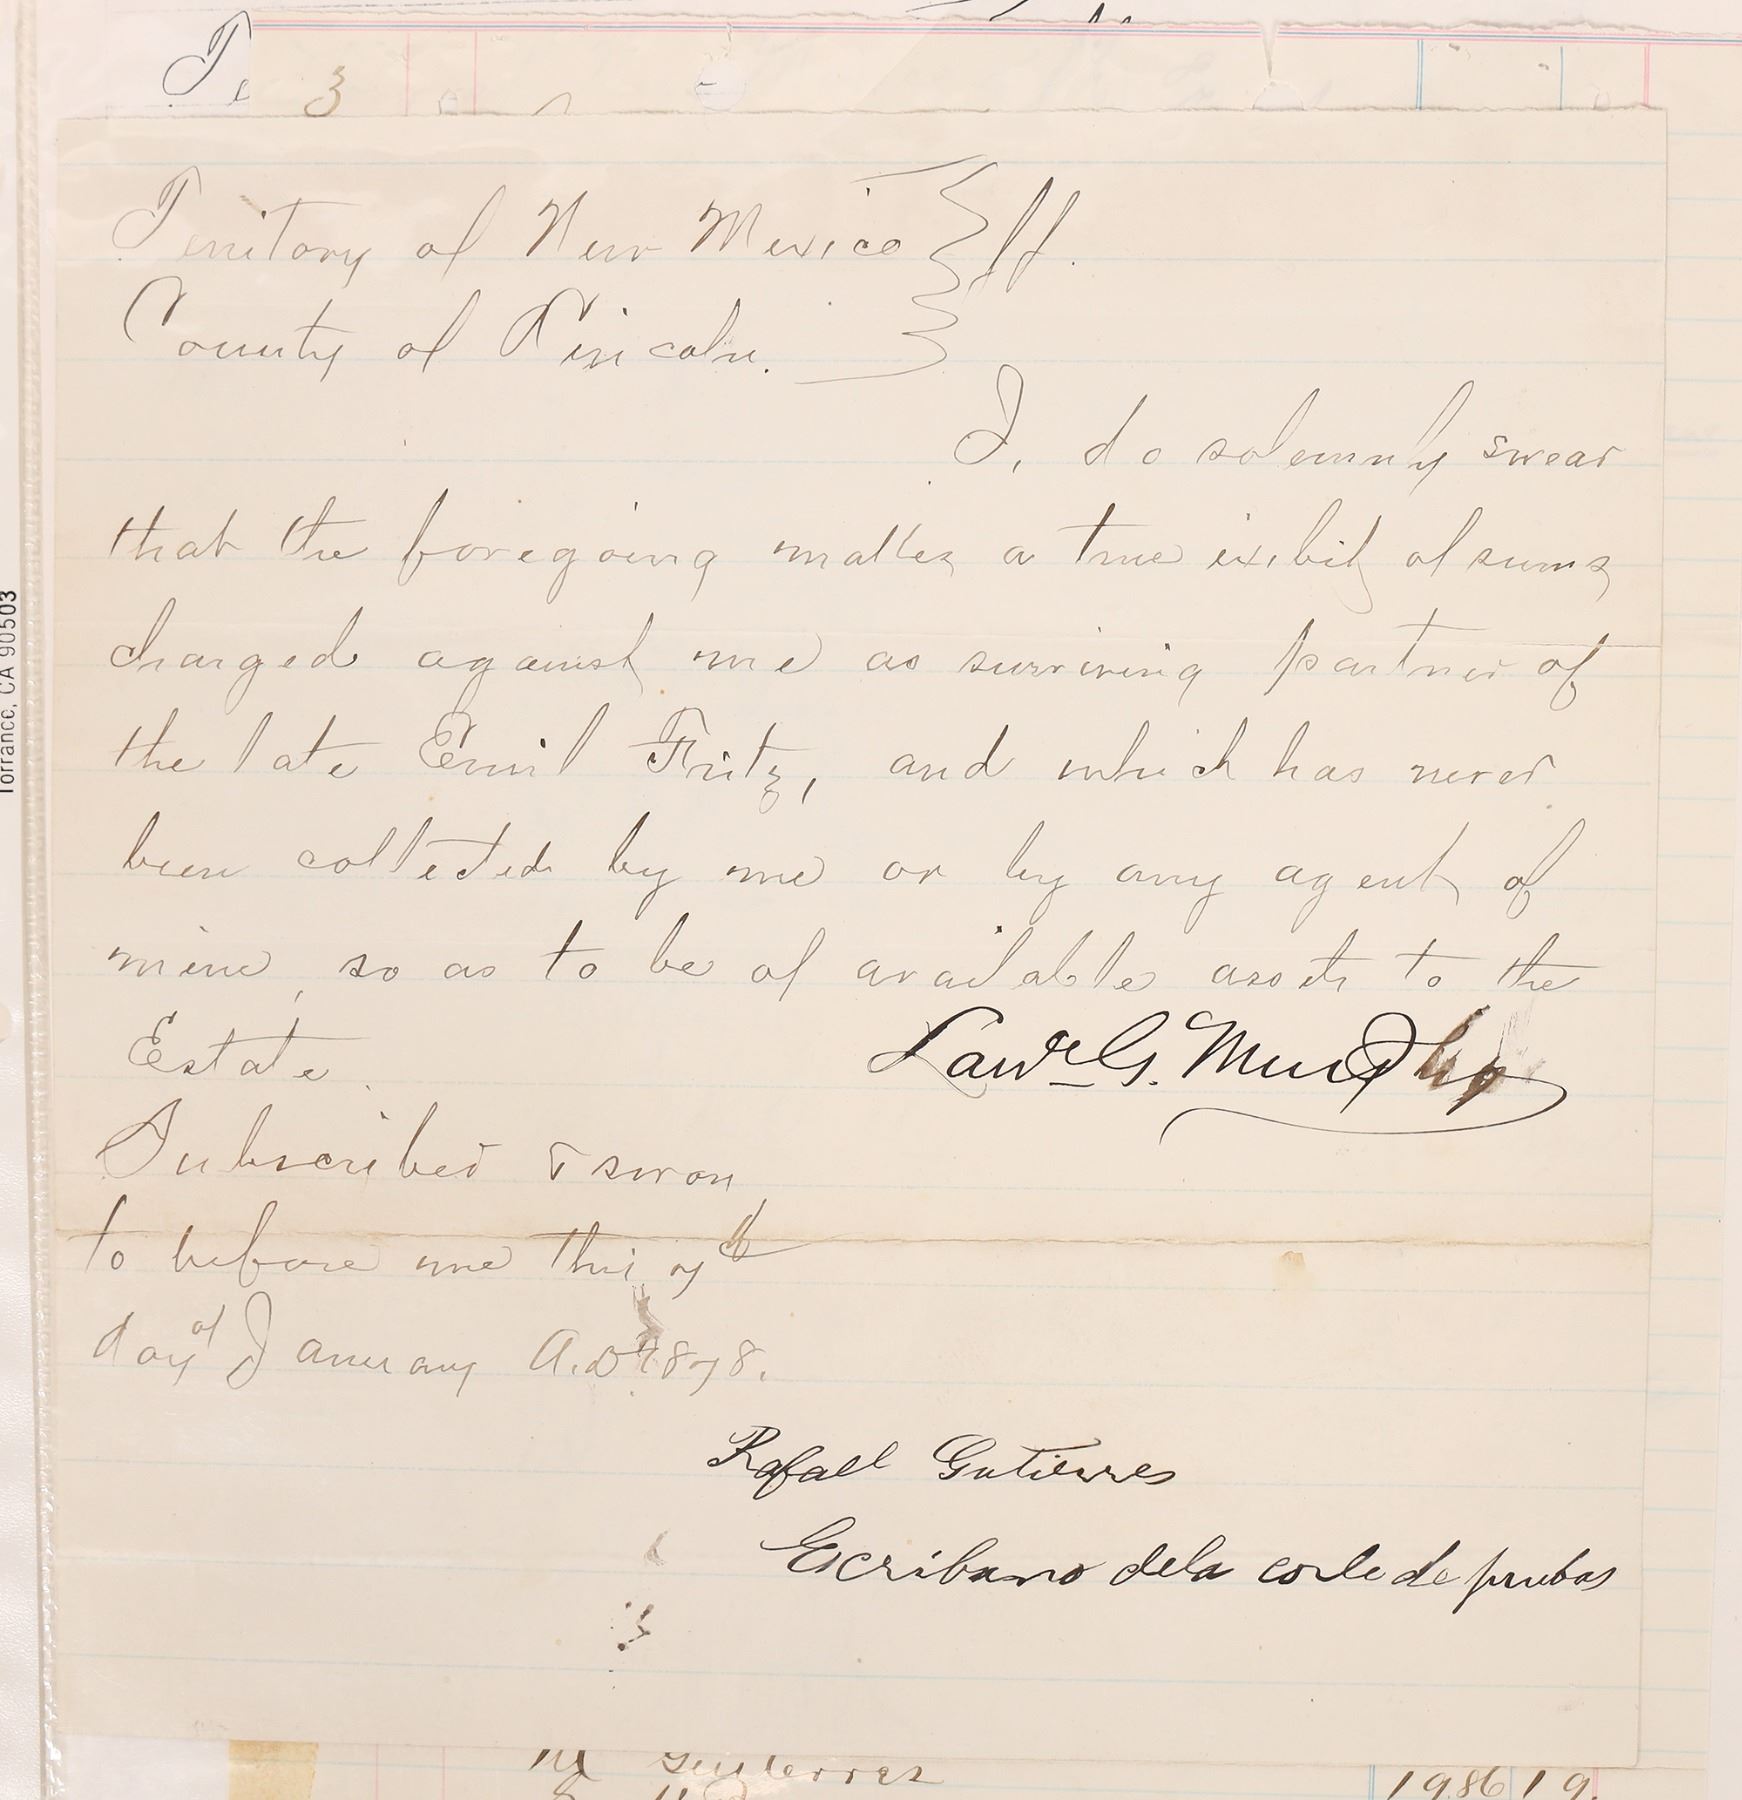 3
Territory of New Mexico } ss.
County of Lincoln.
I, do solemnly swear
that the foregoing matter a true exibit of sums
charged against me as surviving partner of
the late Emil Fritz, and which has never
been collected by me or by any agent of
mine, so as to be of available assets to the
Estate.
Lawce G. Murphy
Subscribed & sworn
to before me this 7th
day of January A.D. 1878.
Rafael Gutierres
Escribano dela corte de prubas
M Gutierrez
1986 19.
Torrance, CA 90503